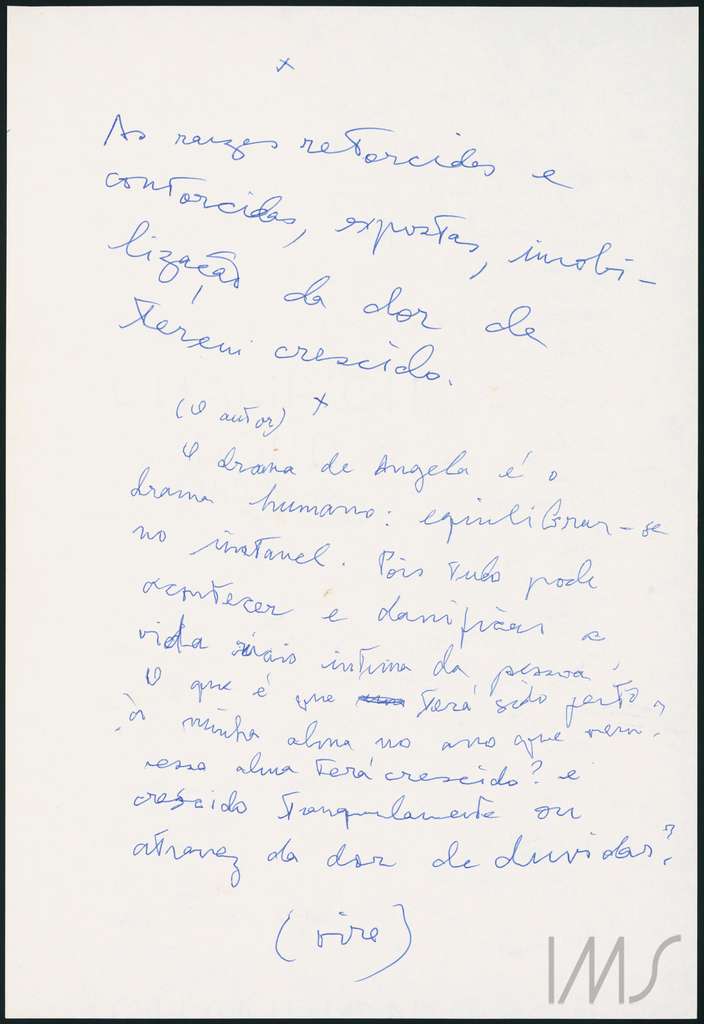 x
As raizes retorcidas e
contorcidas, expostas, imobi-
lização da dor de
terem crescido.
(O autor) x
O drama de Angela é o
drama humano: equilibrar-se
no instavel. Pois tudo pode
acontecer e danificar a
vida mais intima da pessoa.
O que é que terá sido feito
à minha alma no ano que vem?
essa alma terá crescido? e
crescido tranquilamente ou
atravez da dor de duvidar?
(vire)
IMS